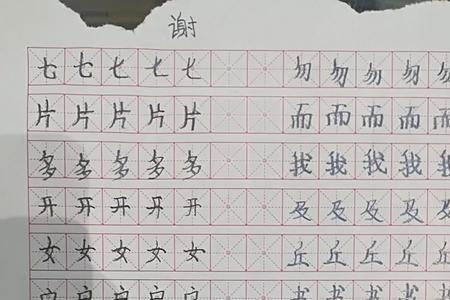 谢
七七七七七 勿勿勿勿勿
片片片片片 而而而而而
多多多多多 我我我我我
开开开开开 及及及及及
女女女女女 丘丘丘丘丘